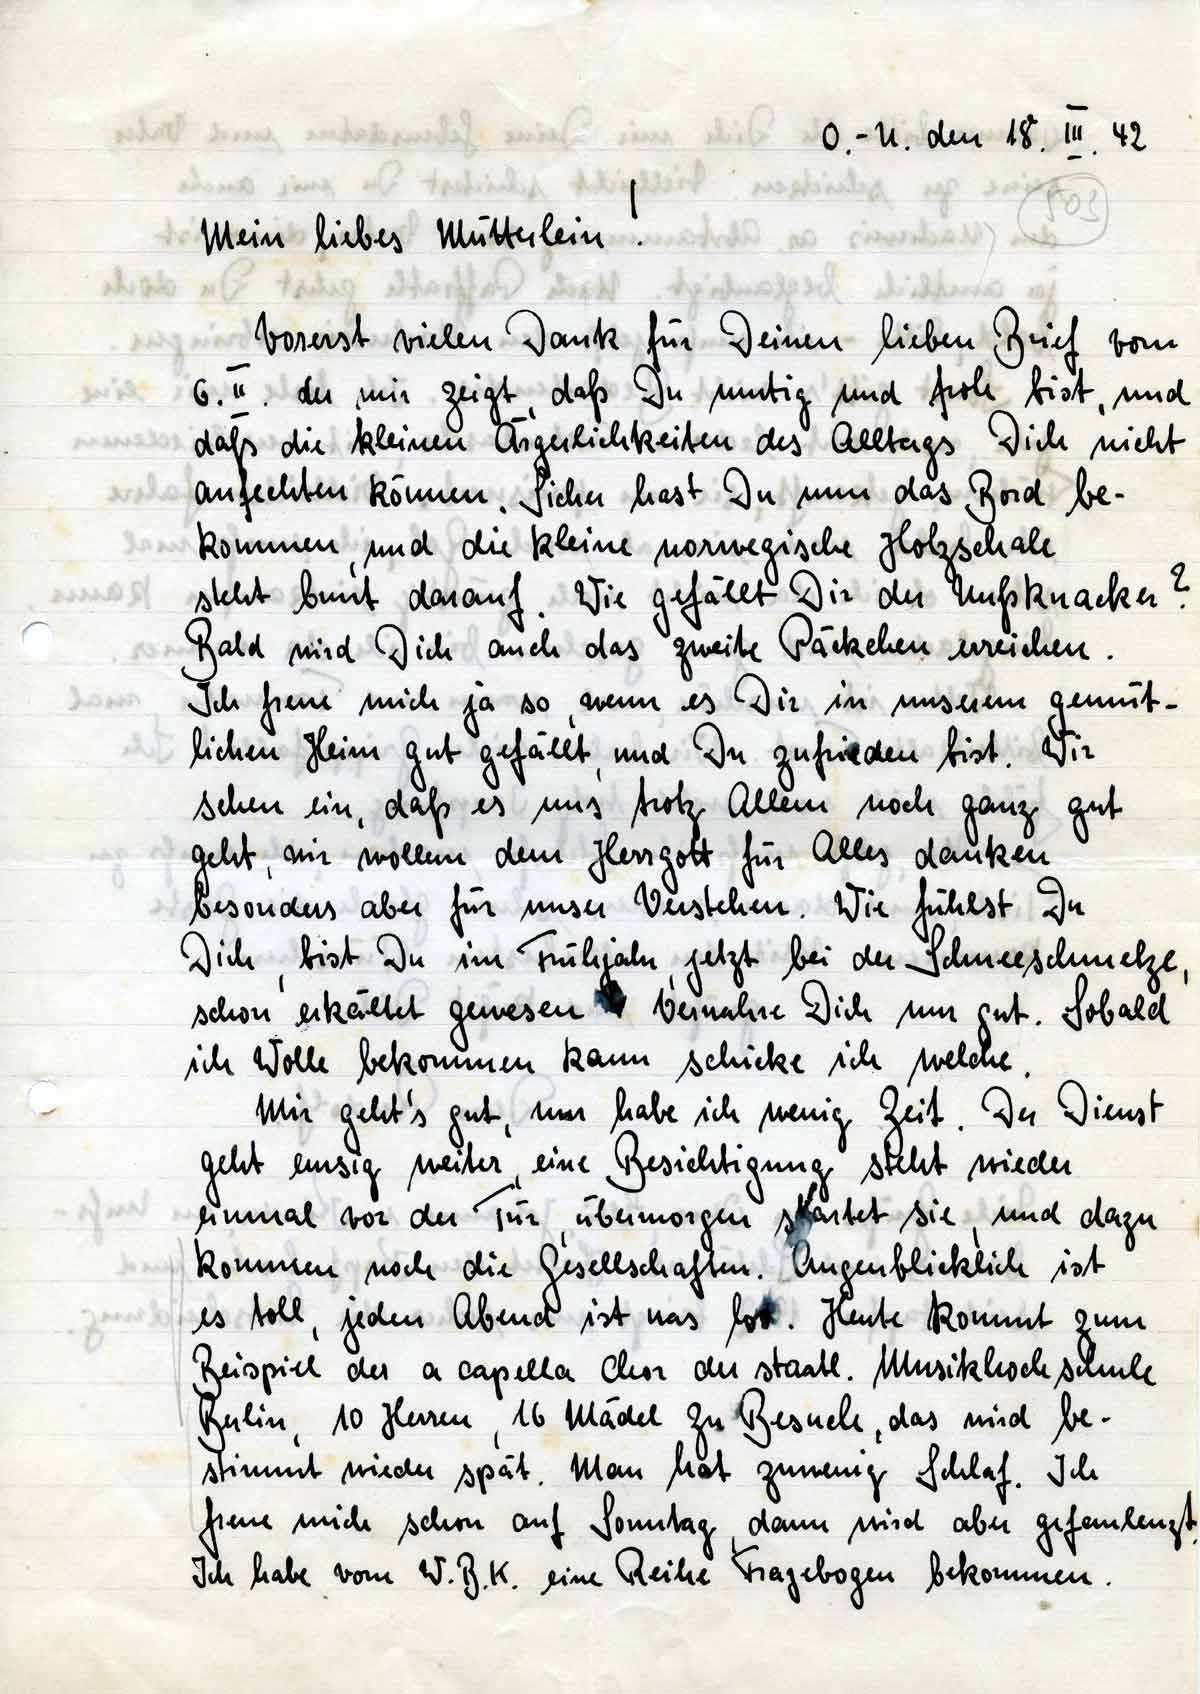 O.-U. den 18. III. 42
305
Mein liebes Mütterlein!
Vorerst vielen Dank für Deinen lieben Brief vom
6. II. der mir zeigt, daß Du mutig und froh bist, und
daß die kleinen Ärgerlichkeiten des Alltags Dich nicht
anfechten können. Sicher hast Du nun das Bord be-
kommen, und die kleine norwegische Holzschale
steht bunt darauf. Wie gefällt Dir der Nußknacker?
Bald wird Dich auch das zweite Päckchen erreichen.
Ich freue mich ja so, wenn es Dir in unserem gemüt-
lichen Heim gut gefällt, und Du zufrieden bist. Wir
sehen ein, daß es uns trotz Allem noch ganz gut
geht, wir wollen dem Herrgott für Alles danken
besonders aber für unser Verstehen. Wie fühlst Du
Dich, bist Du im Frühjahr, jetzt bei der Schneeschmelze,
schon erkältet gewesen Verwahre Dich nur gut. Sobald
ich Wolle bekommen kann schicke ich welche.
Mir geht's gut, nur habe ich wenig Zeit. Der Dienst
geht emsig weiter, eine Besichtigung steht wieder
einmal vor der Tür, übermorgen startet sie, und dazu
kommen noch die Gesellschaften. Augenblicklich ist
es toll, jeden Abend ist was los. Heute kommt zum
Beispiel der a capella Chor der staatl. Musikhochschule
Berlin, 10 Herren, 16 Mädel zu Besuch, das wird be-
stimmt wieder spät. Man hat zuwenig Schlaf. Ich
freue mich schon auf Sonntag, dann wird aber gefaulenzt.
Ich habe vom W.B.K. eine Reihe Fragebogen bekommen.